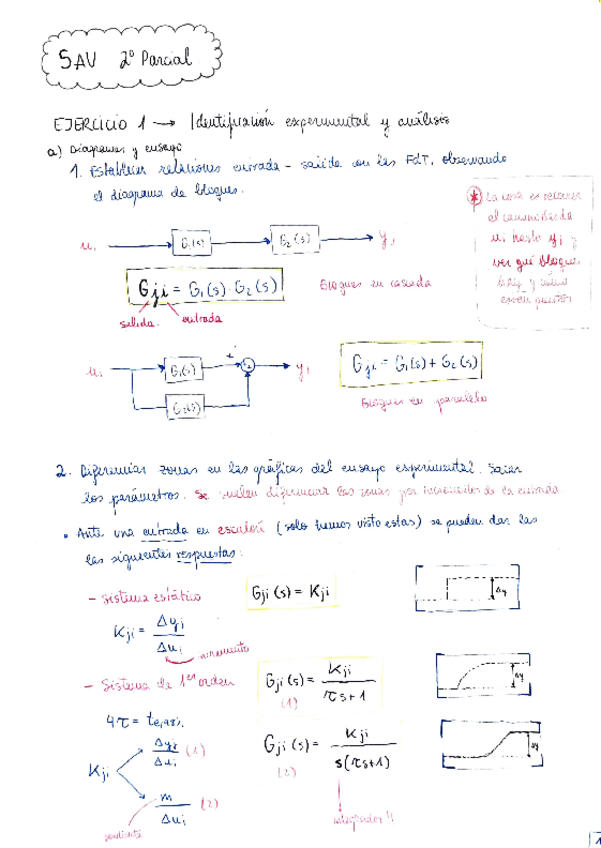 SAV 2º Parcial
EJERCICIO 1 → Identificación experimental y análisis
a) Diagramas y ensayo
1. Establecer relaciones entrada - salida con las FdT, observando
el diagrama de bloques.
* La cosa es recorrer
el camino desde
ui hasta yj y
ver qué bloques
hay y cómo
están puestos
ui G1(s) G2(s) yj
Gji = G1(s) · G2(s)
Bloques en cascada
salida entrada
ui G1(s) + yj
G2(s)
Gji = G1(s) + G2(s)
Bloques en paralelo
2. Diferenciar zonas en las gráficas del ensayo experimental. Sacar
los parámetros. Se suelen diferenciar las zonas por incrementos de la entrada
• Ante una entrada en escalón (solo hemos visto estas) se pueden dar las
las siguientes respuestas:
- Sistema estático
Gji (s) = Kji
Δy
Kji = Δyj / Δui
incremento
- Sistema de 1er orden
Gji (s) = Kji / τs+1
(1)
Δy
4τ =
Gji (s) = Kji / s(τs+1)
(2)
Δy
Kji
Δyj / Δui (1)
m / Δui (2)
pendiente
integrador!!
1